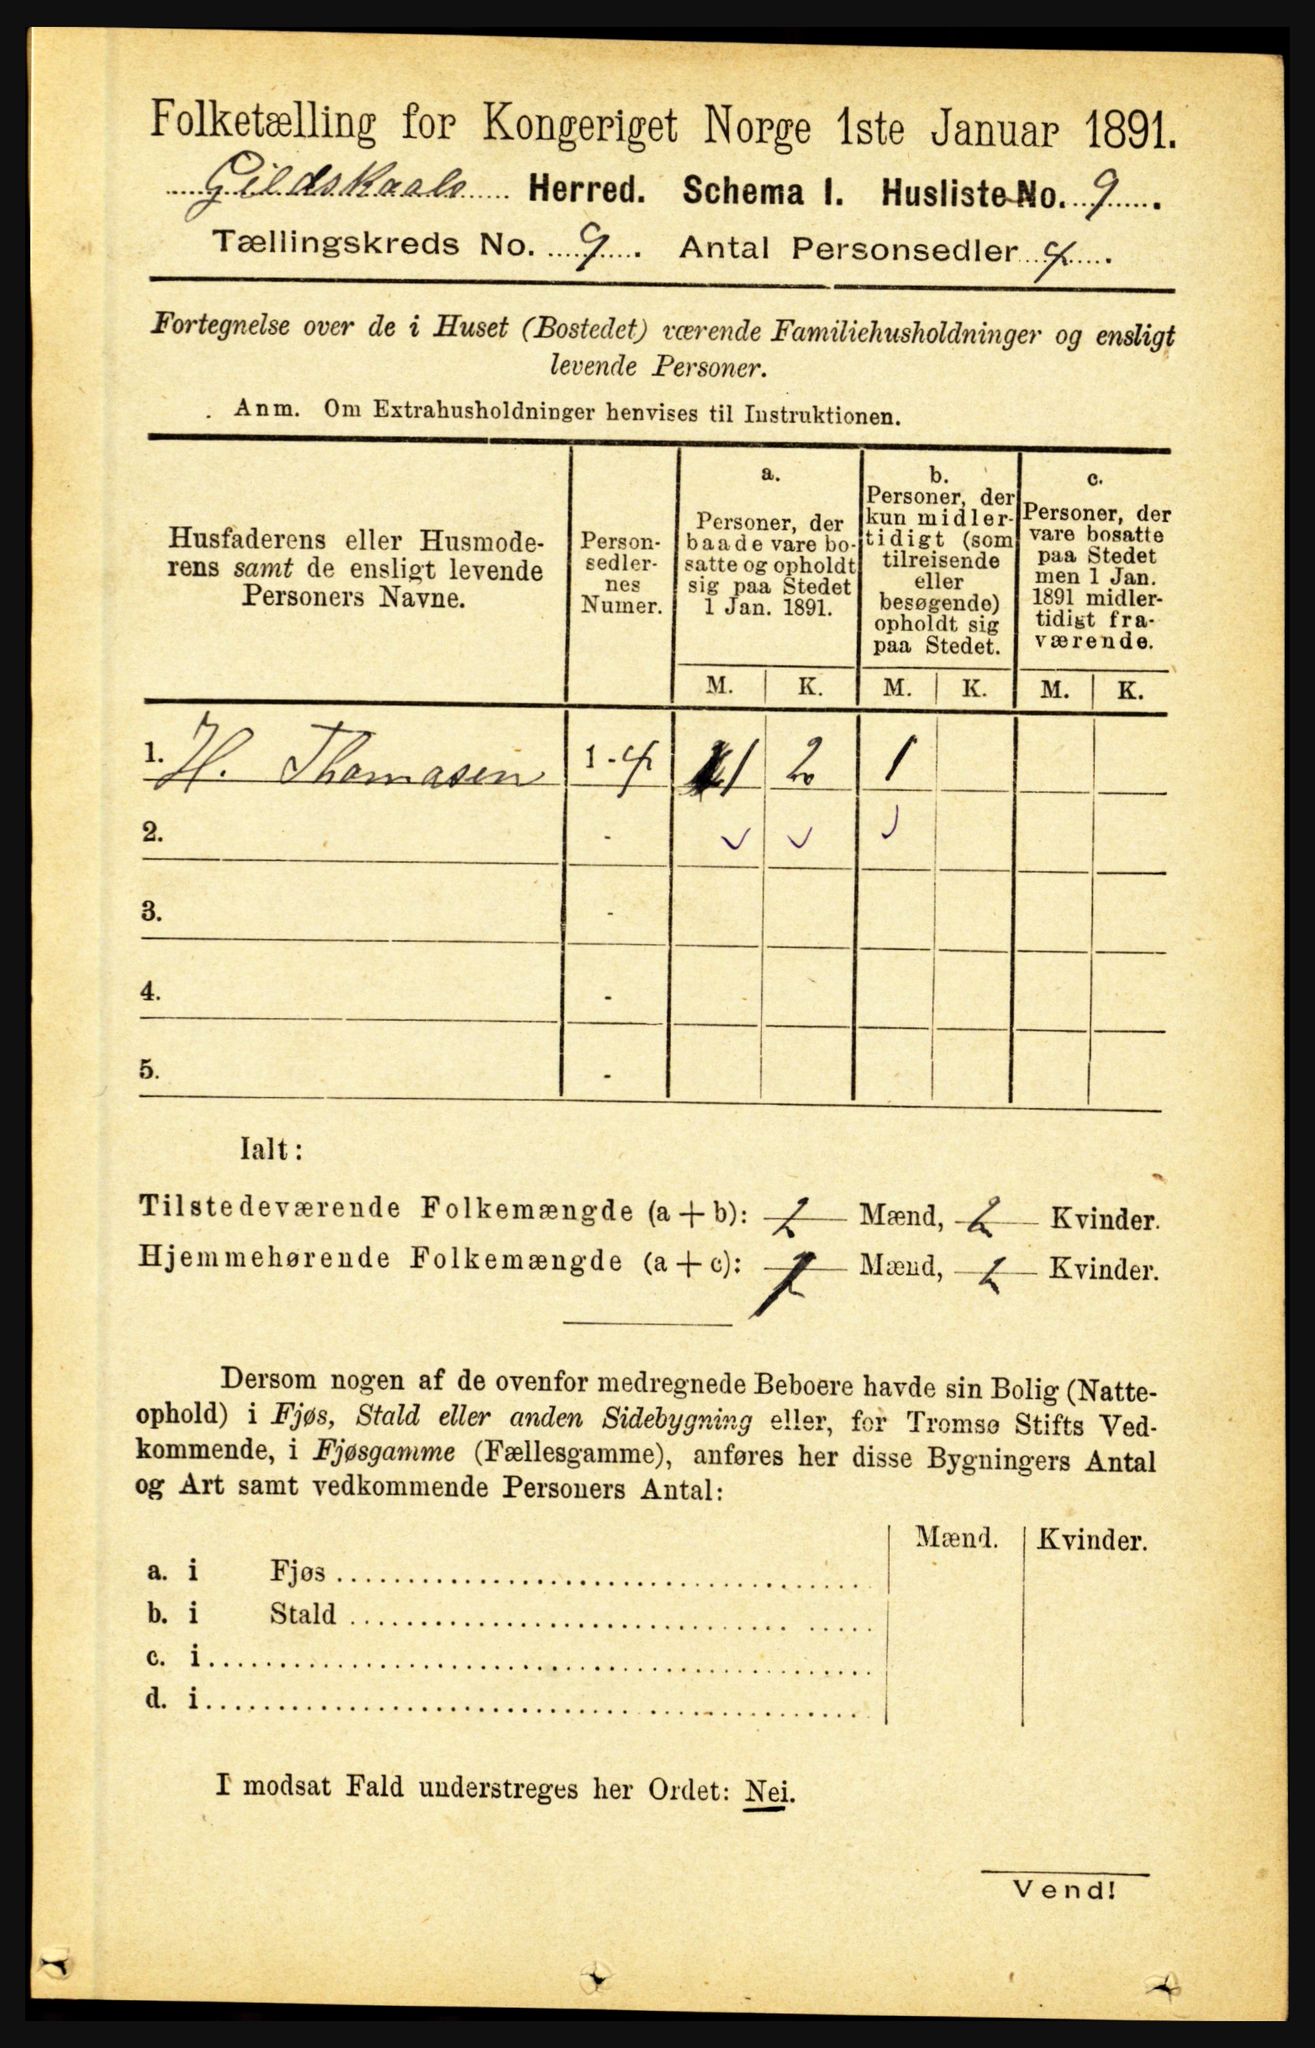 Folketælling for Kongeriget Norge 1ste Januar 1891.
Gildskaals Herred. Schema I. Husliste No. 9.
Tællingskreds No. 9. Antal Personsedler 4.
Fortegnelse over de i Huset (Bostedet) værende Familiehusholdninger og ensligt
levende Personer.
Anm. Om Extrahusholdninger henvises til Instruktionen.
Husfaderens eller Husmode-
rens samt de ensligt levende
Personers Navne.
Person-
sedler-
nes
Numer.
a.
Personer, der
baade vare bo-
satte og opholdt
sig paa Stedet
1 Jan. 1891.
b.
Personer, der
kun midler-
tidigt (som
tilreisende
eller
besøgende)
opholdt sig
paa Stedet.
c.
Personer, der
vare bosatte
paa Stedet
men 1 Jan.
1891 midler-
tidigt fra-
værende.
M. K. M. K. M. K.
1. H. Thomasen 1 - 4 1 2 1
2. -
3. -
4. -
5. -
Ialt:
Tilstedeværende Folkemængde (a + b): 2 Mænd, 2 Kvinder.
Hjemmehørende Folkemængde (a + c): 1 Mænd, 2 Kvinder.
Dersom nogen af de ovenfor medregnede Beboere havde sin Bolig (Natte-
ophold) i Fjøs, Stald eller anden Sidebygning eller, for Tromsø Stifts Ved-
kommende, i Fjøsgamme (Fællesgamme), anføres her disse Bygningers Antal
og Art samt vedkommende Personers Antal:
Mænd. Kvinder.
a. i Fjøs
b. i Stald
c. i
d. i
I modsat Fald understreges her Ordet: Nei.
Vend!